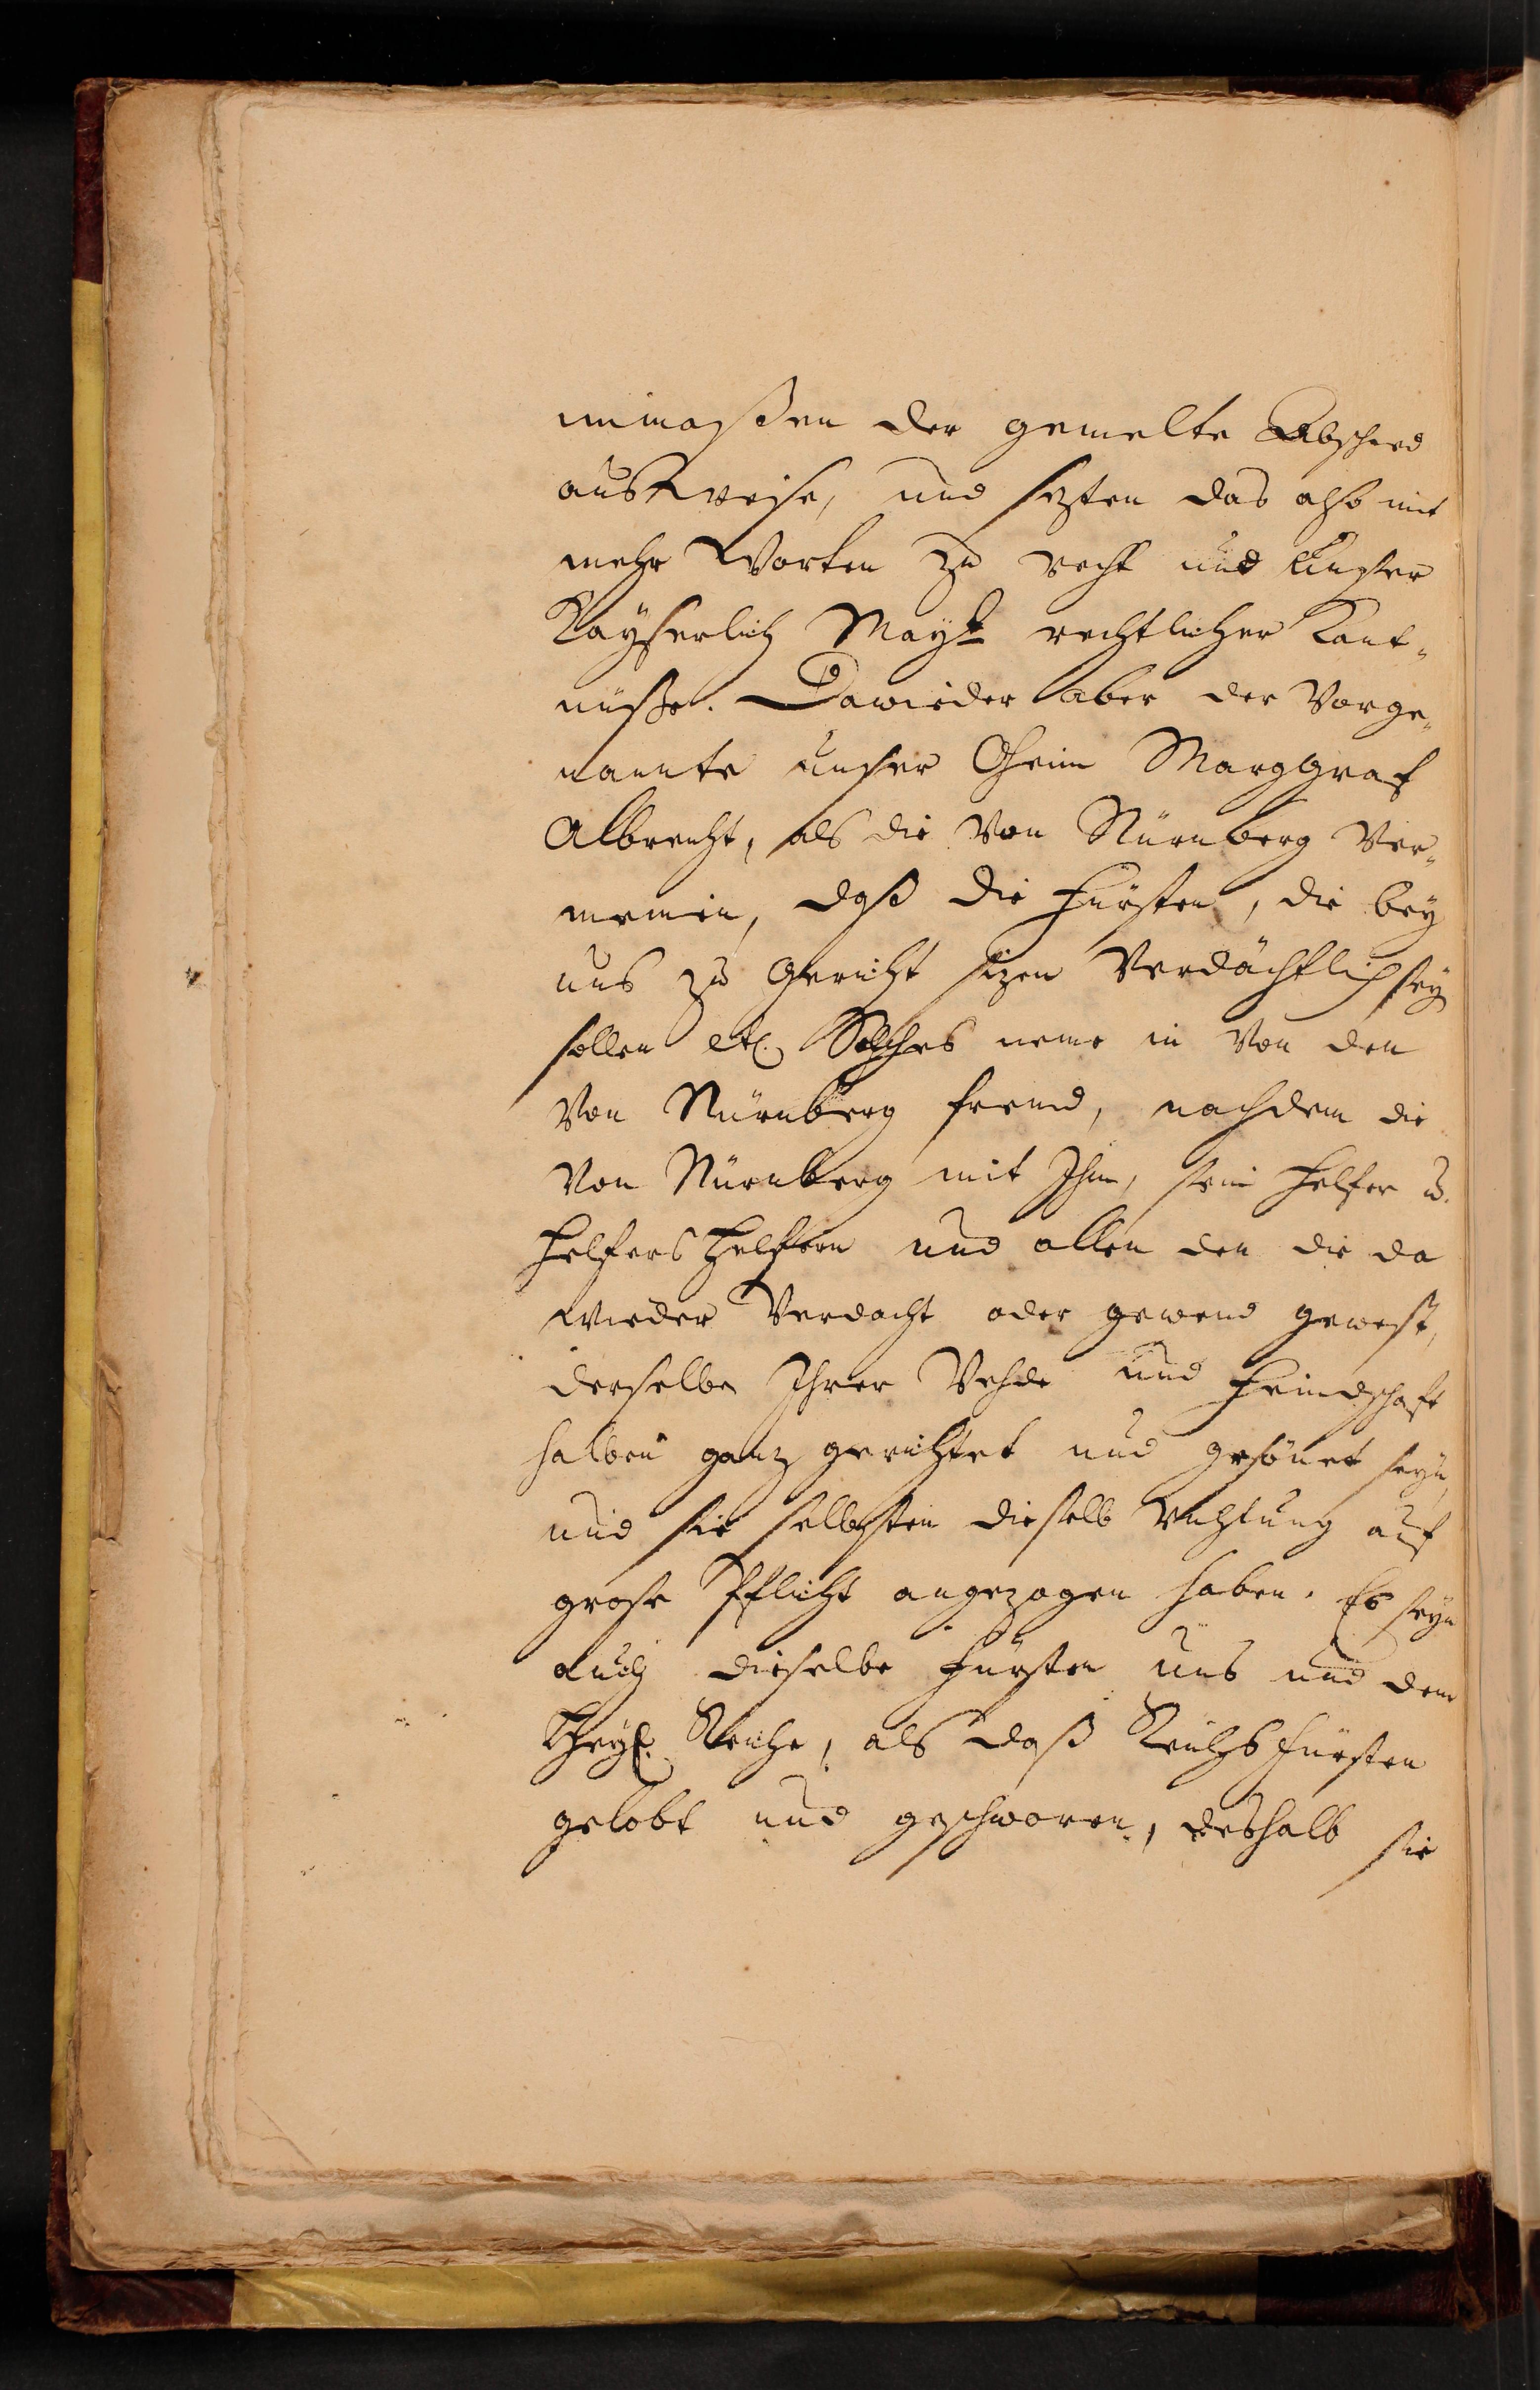 inmaßen der gemelte Abschied
ausweise, und sezten das also mit
mehr Worten zu recht und Unser
Kayserlich Mayt rechtlicher Kant-
nüße. Dawieder aber der Vorge-
nannte unser Oheim Marggraf
Albrecht, als die Von Nürnberg Ver-
meinen, daß die Fürsten, die bey
uns zu Gericht sizen Verdächtlich sey
sollen etc. Solches neme in Von den
Von Nürnberg fremd, nachdem die
Von Nürnberg mit Ihm, sein Helfer u.
Helfers Helfern und allen den die da
wieder Verdacht oder gewend gewest,
derselben Ihrer Vehde und Feindschaft
halben ganz gerichtet und gesönet seyn,
und sie selbsten dieselb Richtung auf
grose Pflicht angezogen haben. Es seyn
auch dieselbe Fürsten uns und dem
Heyl. Reiche, als daß Reichs Fürsten
gelobt und geschworen, deshalb sie